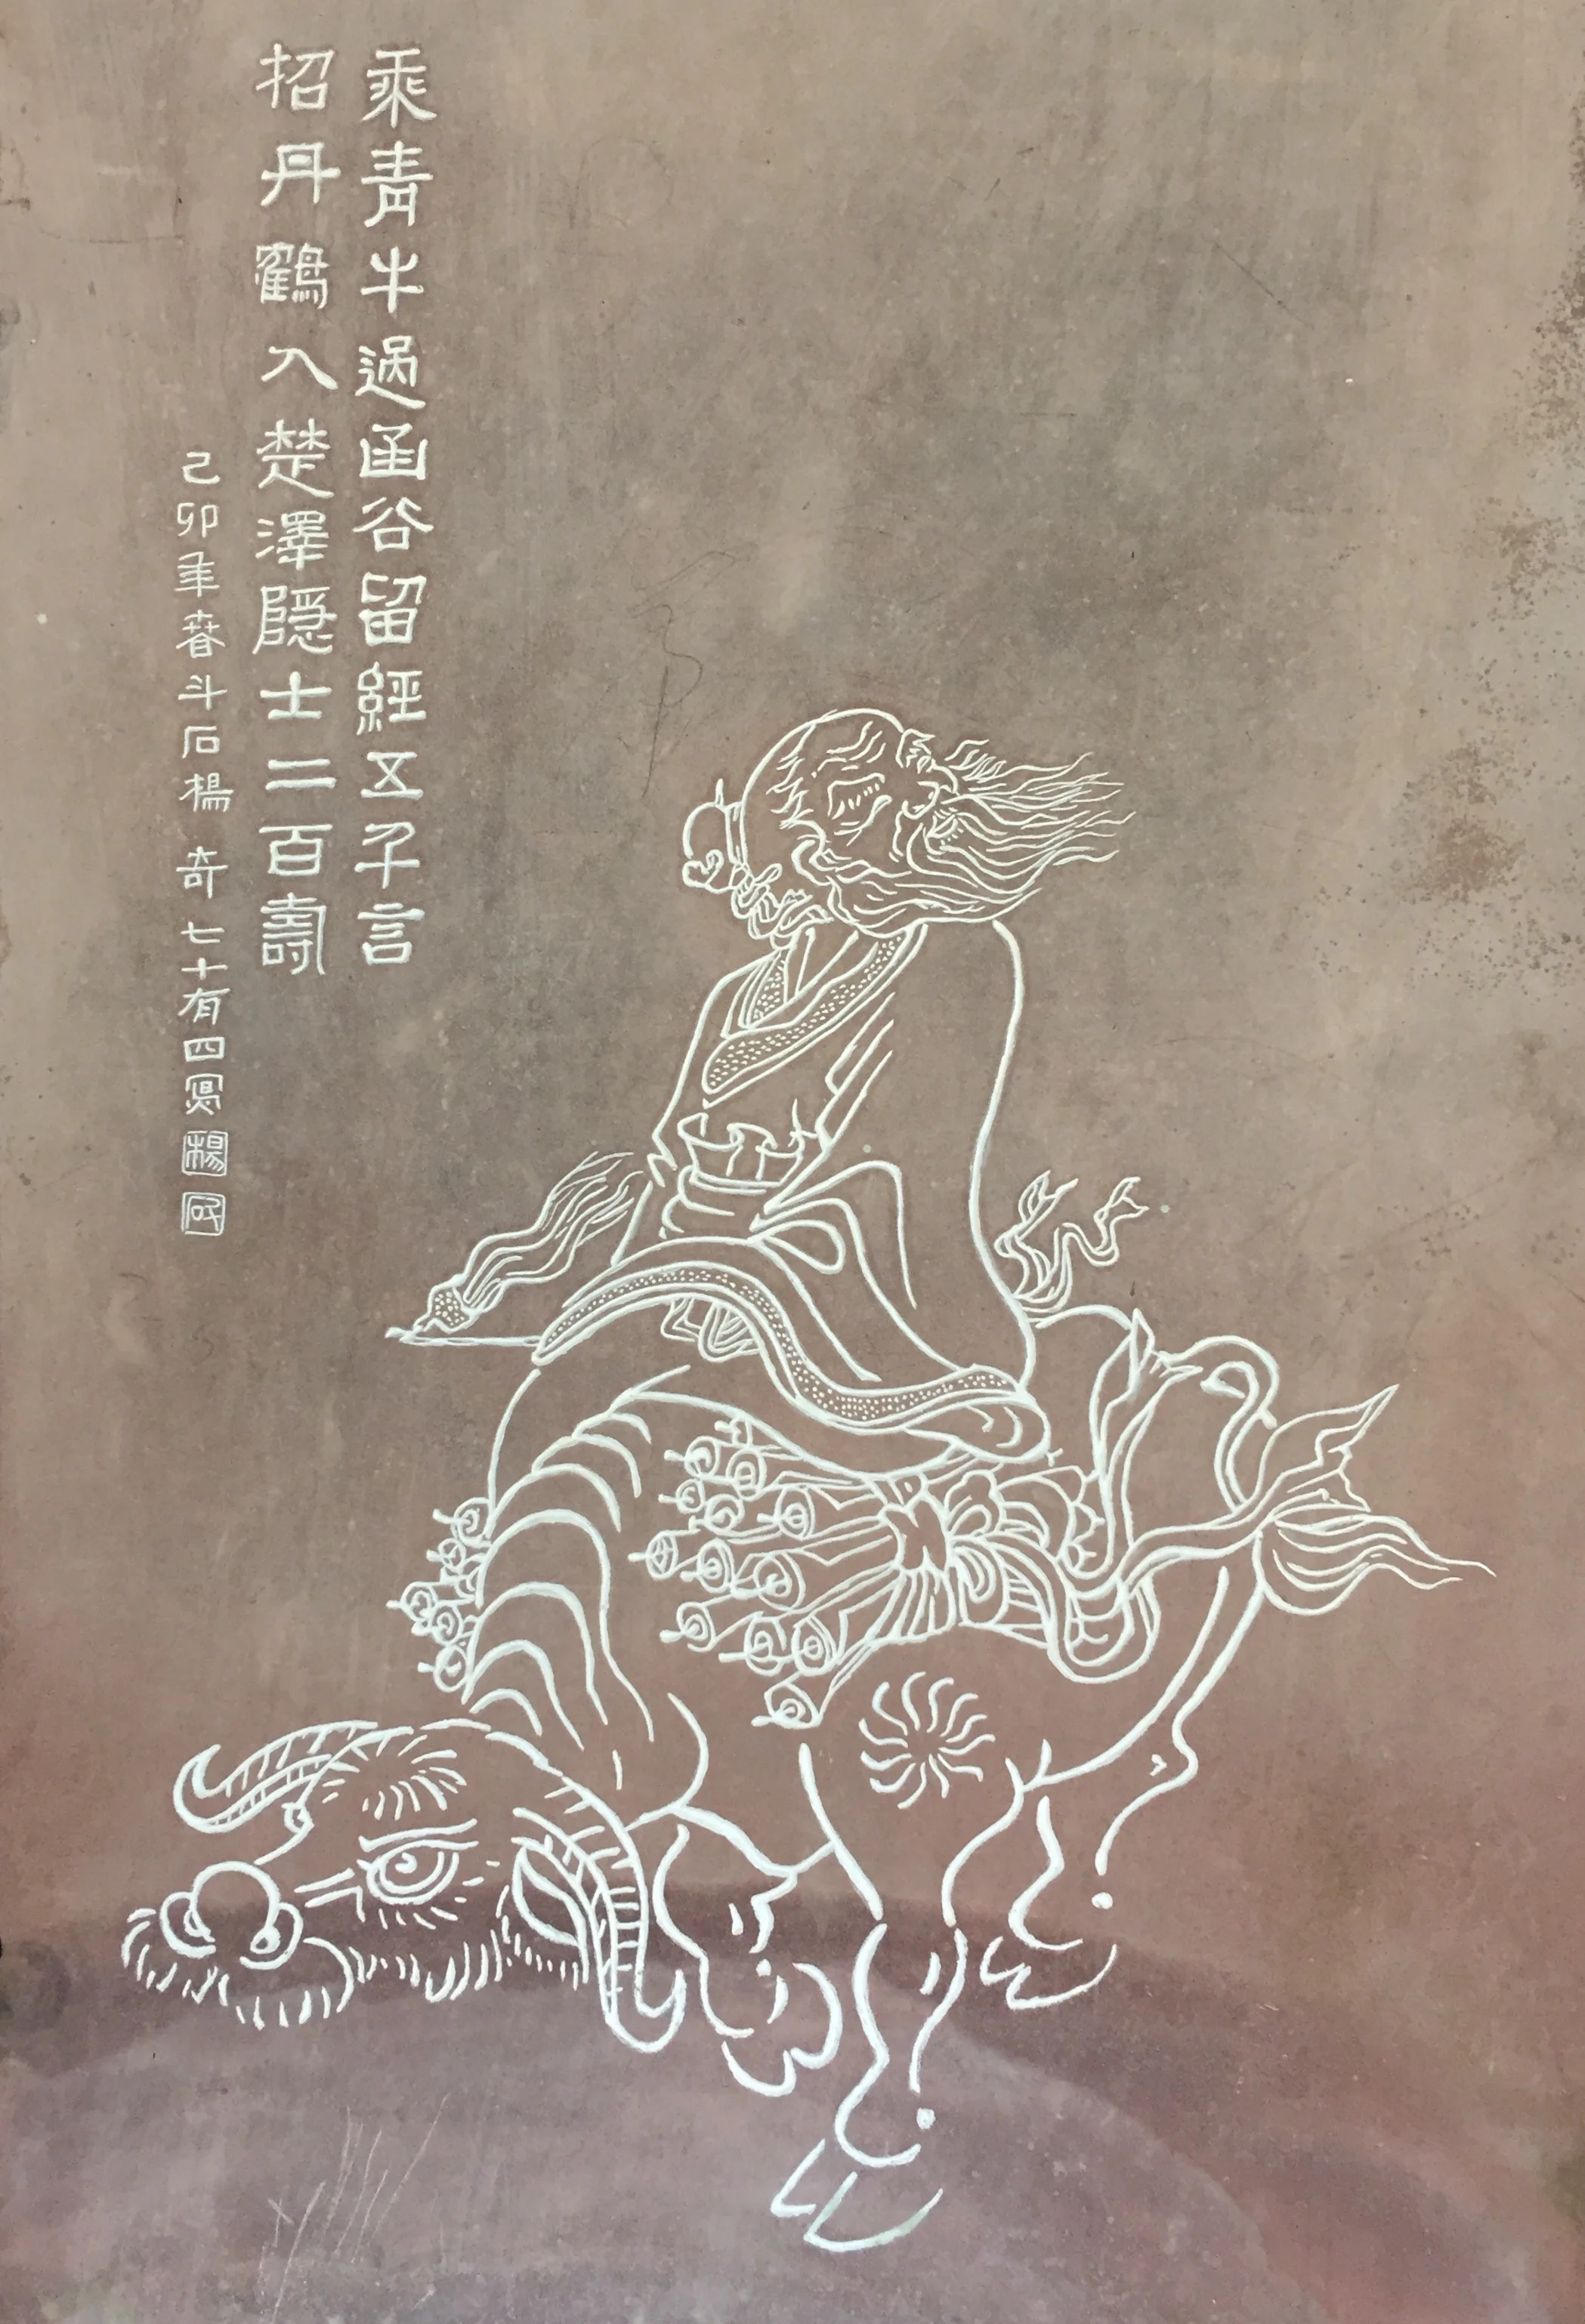 乘青牛過函谷留經五千言
招丹鶴入楚澤隱士二百壽
己卯年春斗石楊奇七十有四寫
楊